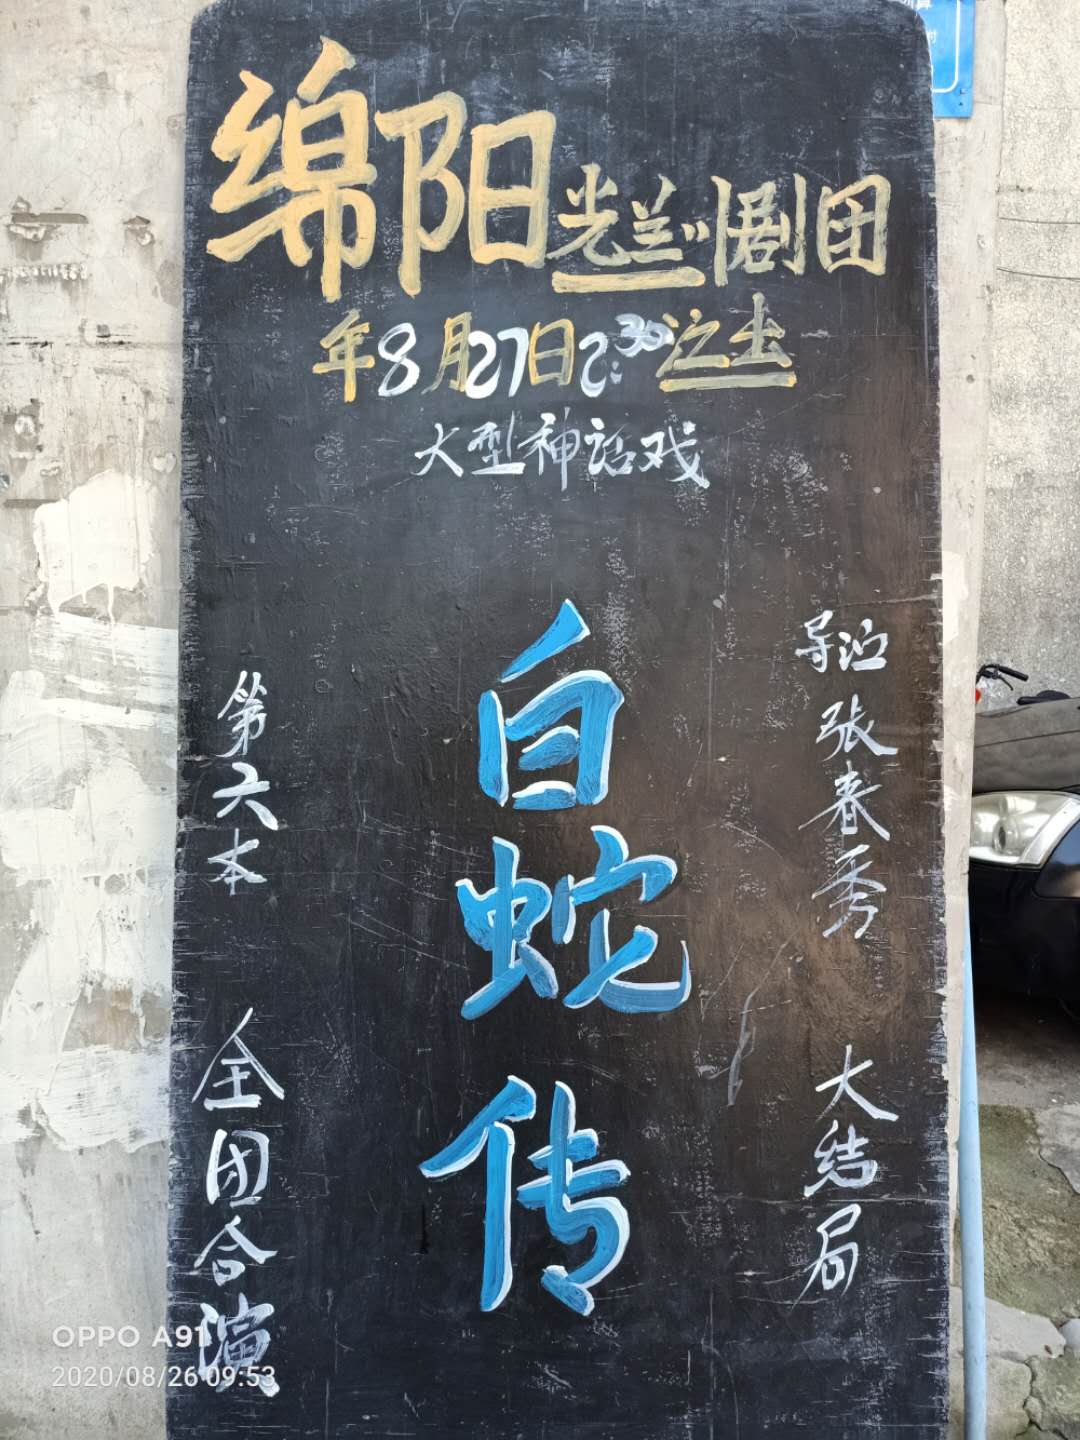 绵阳光兰川剧团
年8月27日2:30演出
大型神话戏
导演 张春秀 大结局
白蛇传
第六本 全团合演
OPPO A91
2020/08/26 09:53